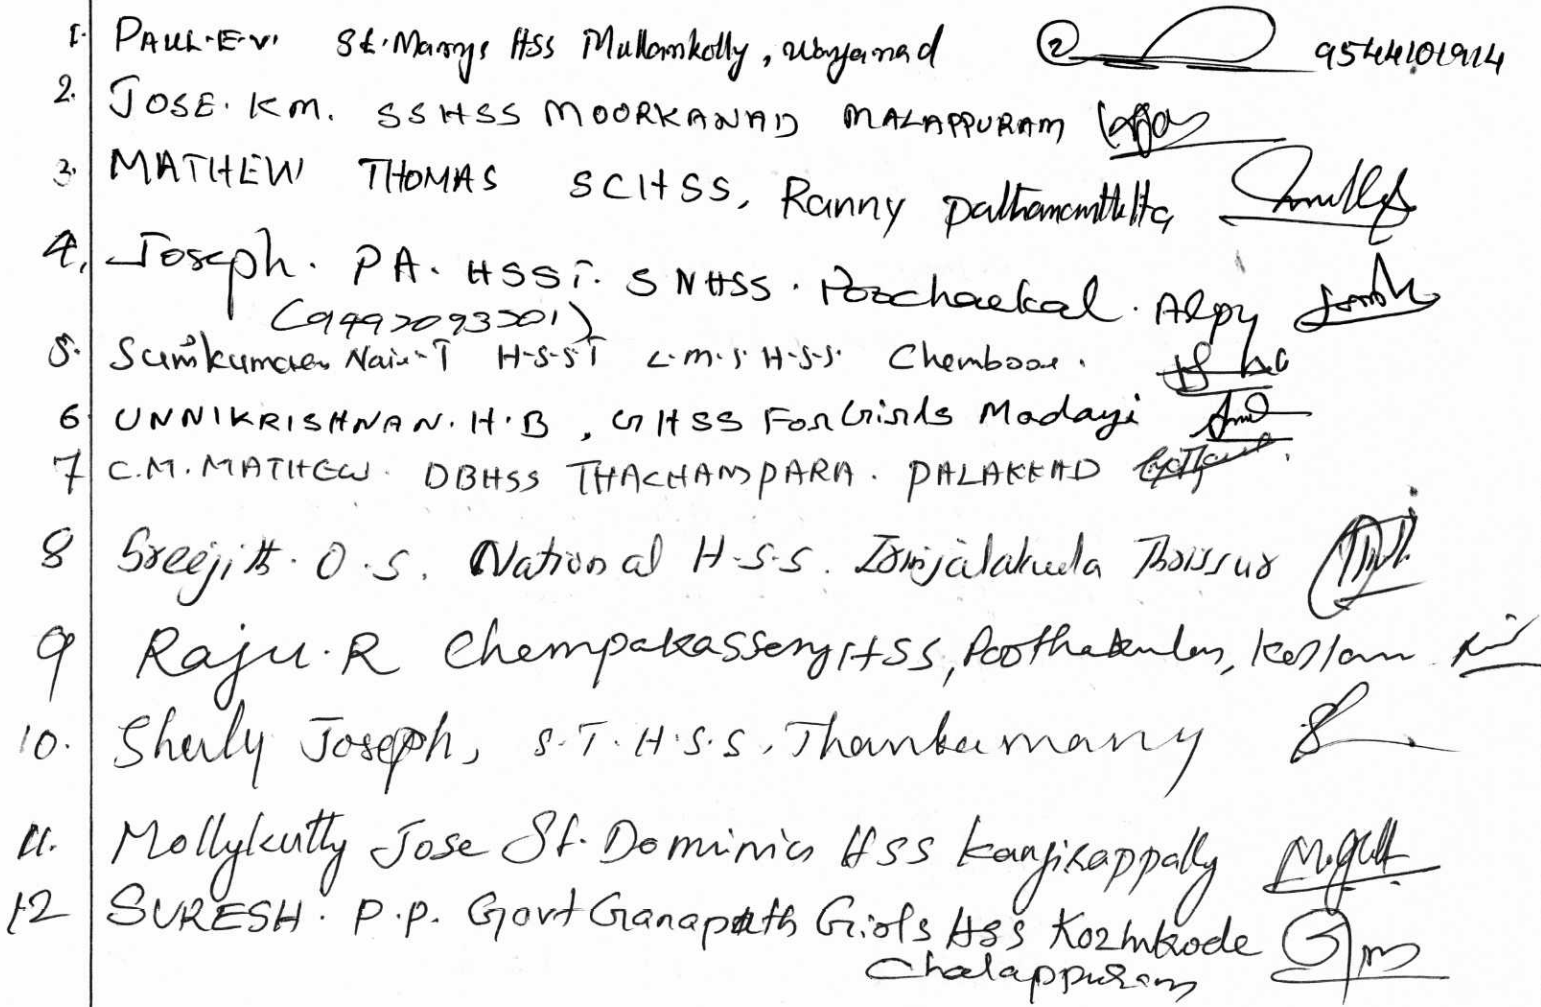 1. PAUL.E.V. St. Marys HSS Mullamkolly, Wayanad ②
2. JOSE. KM. SSHSS MOORKANAD MALAPPURAM
3. MATHEW THOMAS SCHSS, Ranny Pathanamthitta
4. Joseph. PA. HSST. SNHSS. Poochackal. Alpy
5. Nair T H.S.ST L.M.S H.S.S. Chemboor.
6 UNNIKRISHNAN. H.B, GHSS For Girls Madayi
7 C.M. MATHEW. DBHSS THACHAMPARA. PALAKKAD
8 Sreejith. O.S. National H.S.S. Irinjalakuda Thrissur
9 Raju.R Chempakassery HSS, Poothakulam, Kollam
10. Sherly Joseph, S.T.H.S.S, Thankamany
11. Mollykutty Jose St. Dominics HSS Kanjirappally
12 SURESH. P.P. Govt Ganapath Girls HSS Kozhikode
Chalappuram